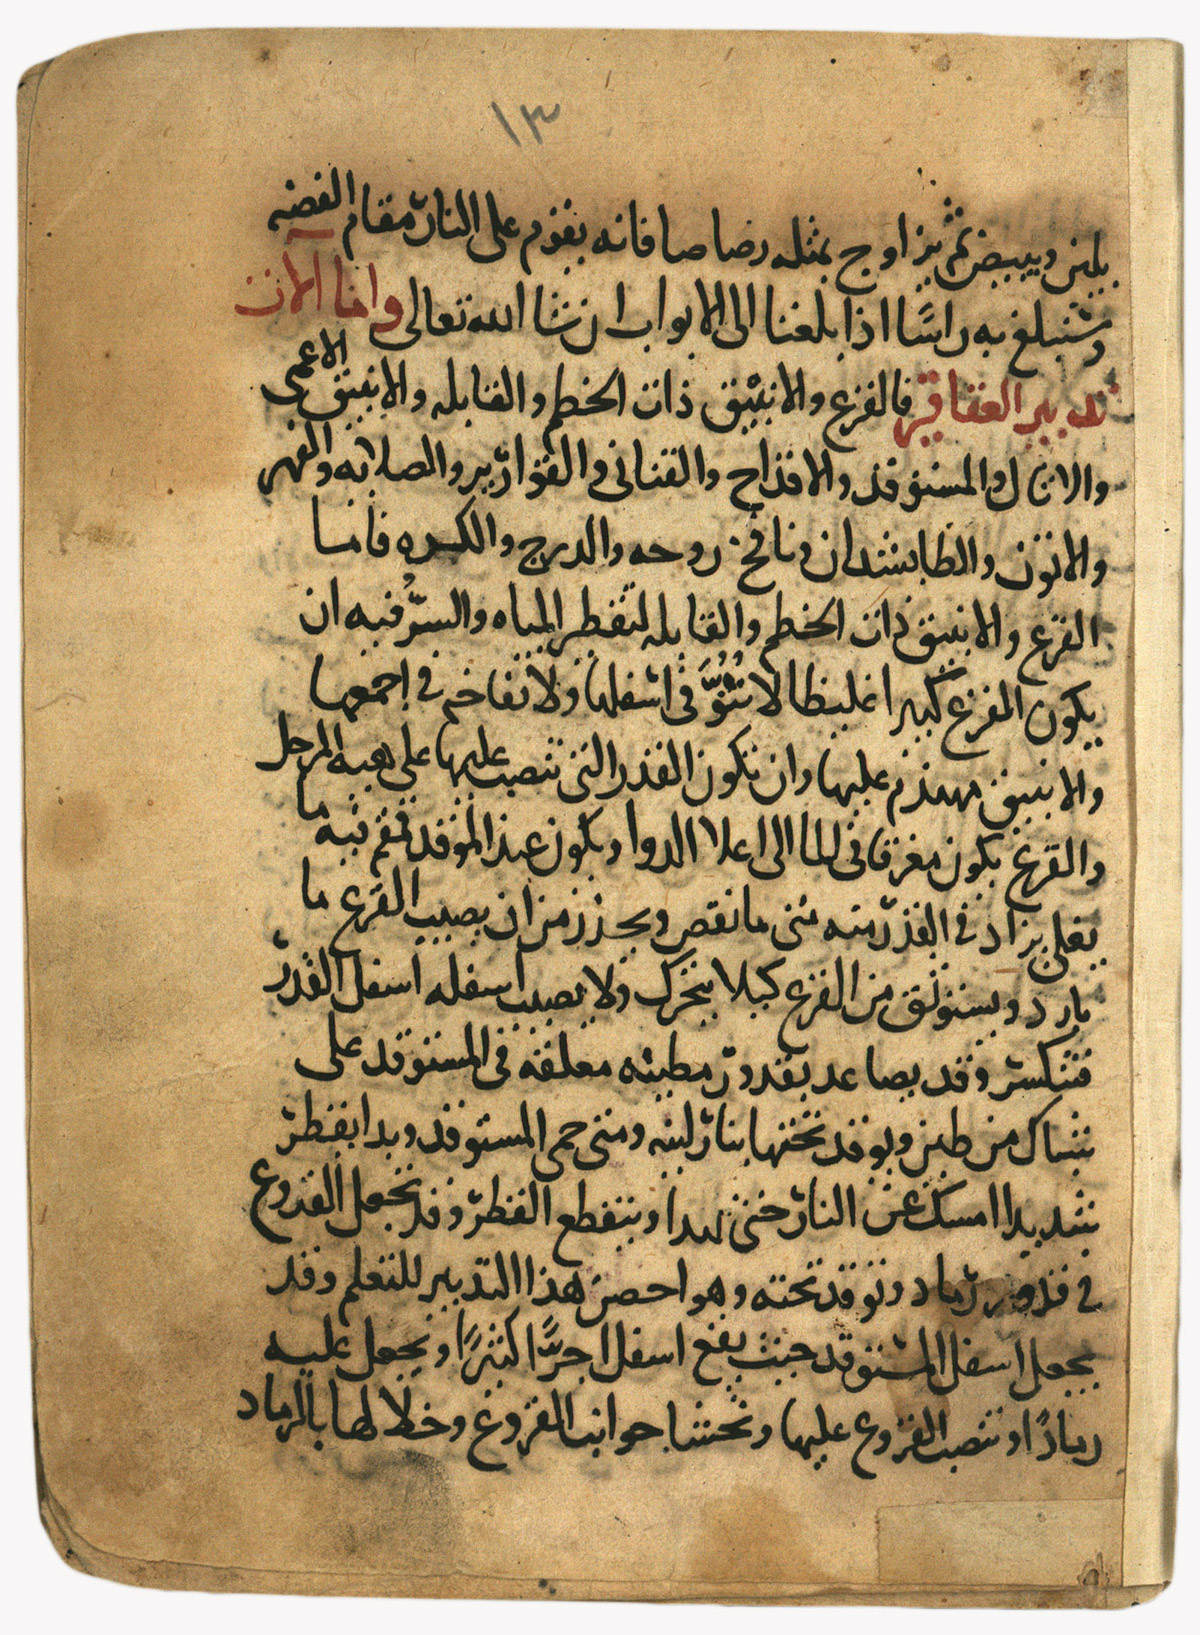 ١٣
يلين ويبيض ثم يزاوج بمثله رصاصا فانه يقوم على النار مقام الفضه
وسنبلغ به راسًا اذا بلغنا الى الابواب ان شا الله تعالى واما الات
تدبير العقاقير فالقرع والانبيق ذات الخطم والقابله والانبيق الاعمى
والاثال والمستوقد والاقداح والقنانى والقوارير والصلايه والفهر
والاتون والطابشدان ونافخ روحه والدرج والكره فاما
القرع والانبيق ذات الخطم والقابله لتقطير المياه والسرّ فيه ان
يكون القرع كبيرا غليظا لا نتوّ فى اسفلها ولا نفاخه فى اجمعها
والانبيق مهندم عليها وان تكون القدر التى تنصب عليها على هيه المرجل
والقرع يكون مغرقا فى الما الى اعلا الدوا ويكون عند الموقد قمقم فيه ما
يغلى يزاد فى القدر منه متى ما نقص ويحذر من ان يصيب القرع ما
بارد ويستوثق من القرع كيلا يتحرك ولا يصيب اسفله اسفل القدر
فتنكسر وقد يصاعد بقدور مطينه معلقه فى المستوقد على
شباك من طين ويوقد تحتها بنار لينه ومتى حمى المستوقد وبدا يقطر
شديدا امسك عن النار حتى يهدا وينقطع القطر وقد تجعل القروع
فى قدور رماد وتوقد تحته وهو احصن هذا التدبير للمتعلم وقد
يجعل اسفل المستوقد حيث يقع اسفل اجرًّا كثيرًا ويجعل عليه
رمادًا وتنصب القروع عليها وتحشا جوانب القروع وخلالها بالرماد